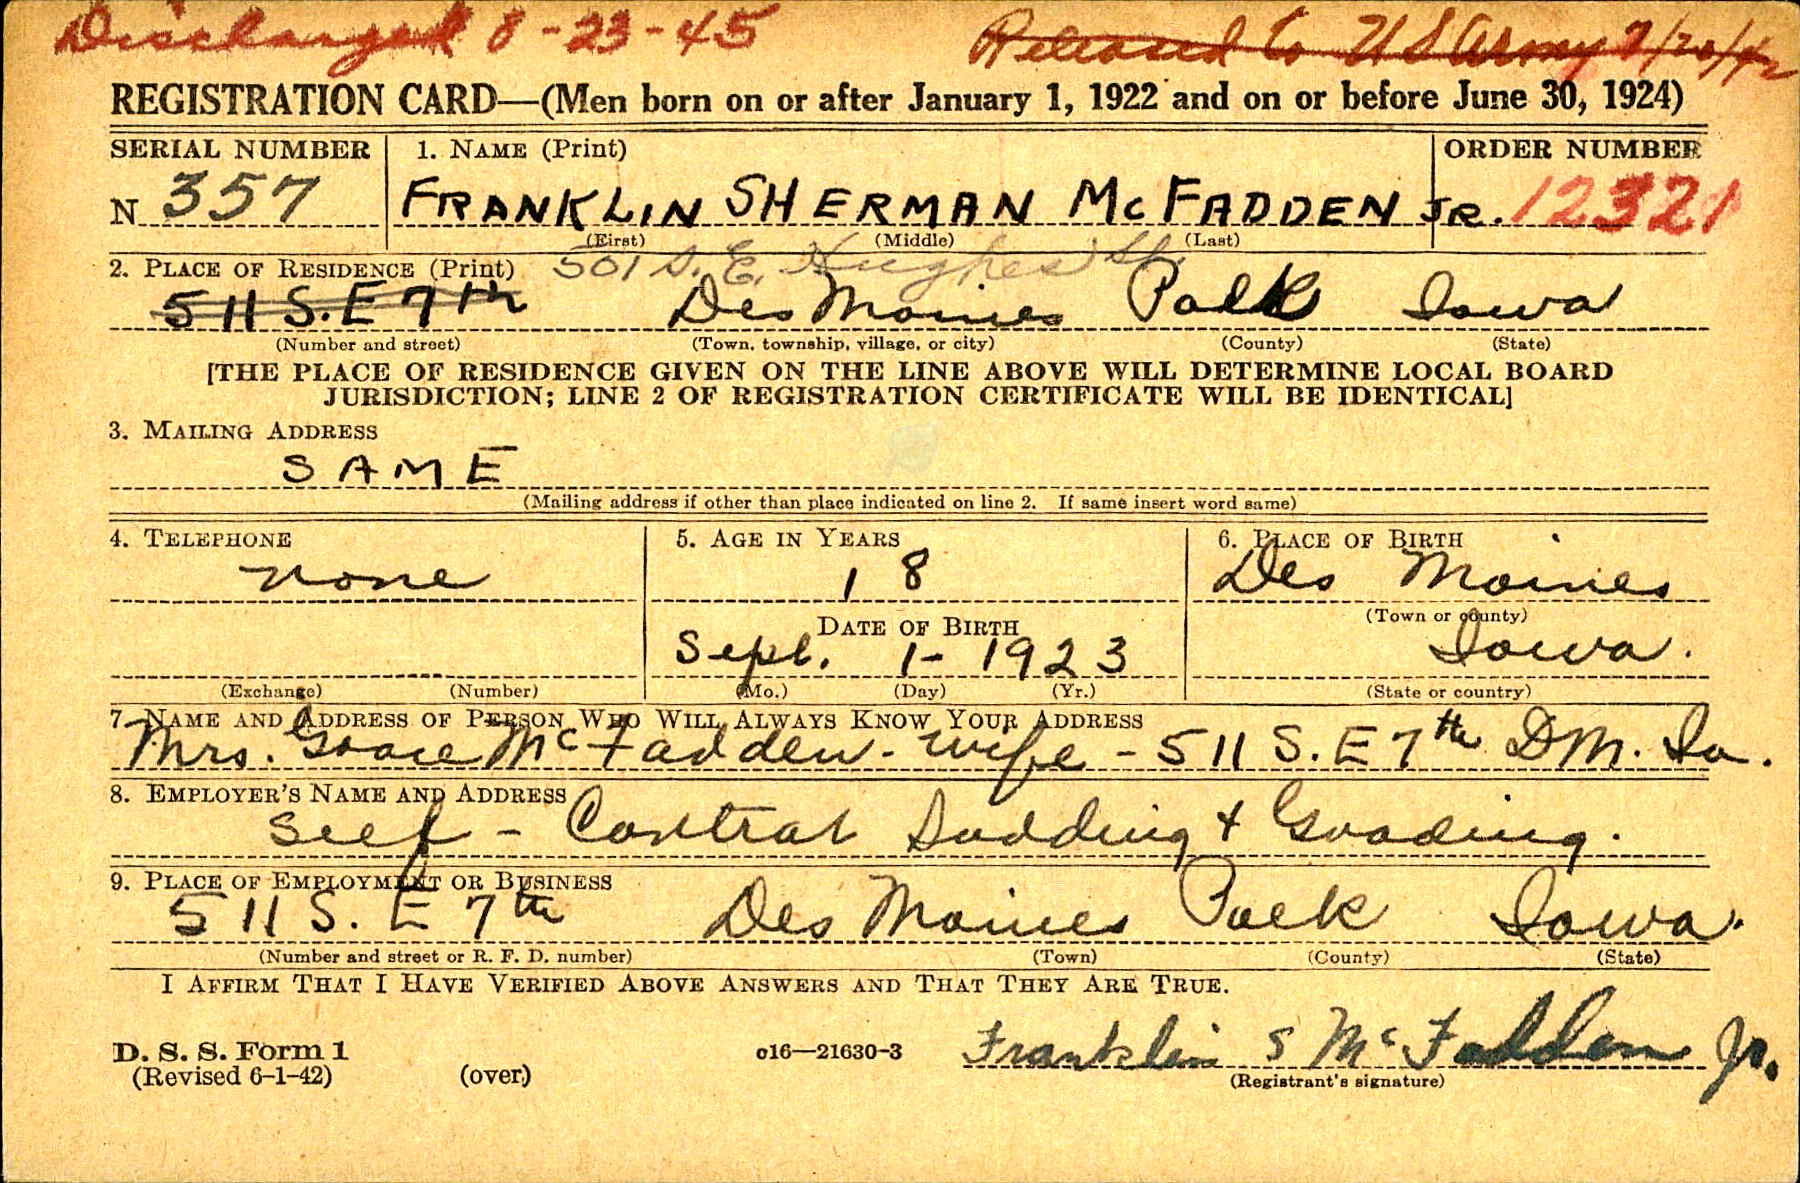 Discharged 8-23-45
Released to US Army 9/20/42
REGISTRATION CARD—(Men born on or after January 1, 1922 and on or before June 30, 1924)
SERIAL NUMBER
1. NAME (Print)
ORDER NUMBER
N 357
FRANKLIN SHERMAN McFADDEN JR.
12321
(First) (Middle) (Last)
2. PLACE OF RESIDENCE (Print)
501 S. E. Hughes St.
511 S.E 7th Des Moines Polk Iowa
(Number and street) (Town, township, village, or city) (County) (State)
[THE PLACE OF RESIDENCE GIVEN ON THE LINE ABOVE WILL DETERMINE LOCAL BOARD
JURISDICTION; LINE 2 OF REGISTRATION CERTIFICATE WILL BE IDENTICAL]
3. MAILING ADDRESS
SAME
(Mailing address if other than place indicated on line 2. If same insert word same)
4. TELEPHONE
none
(Exchange) (Number)
5. AGE IN YEARS
18
DATE OF BIRTH
Sept. 1- 1923
(Mo.) (Day) (Yr.)
6. PLACE OF BIRTH
Des Moines
(Town or county)
Iowa.
(State or country)
7. NAME AND ADDRESS OF PERSON WHO WILL ALWAYS KNOW YOUR ADDRESS
Mrs. Grace McFadden - wife - 511 S. E 7th DM. Ia.
8. EMPLOYER'S NAME AND ADDRESS
Self - Contrat Sodding & Grading.
9. PLACE OF EMPLOYMENT OR BUSINESS
511 S. E 7th Des Moines Polk Iowa.
(Number and street or R. F. D. number) (Town) (County) (State)
I AFFIRM THAT I HAVE VERIFIED ABOVE ANSWERS AND THAT THEY ARE TRUE.
D. S. S. Form 1
(Revised 6-1-42) (over) c16—21630-3
Franklin S McFadden Jr.
(Registrant's signature)